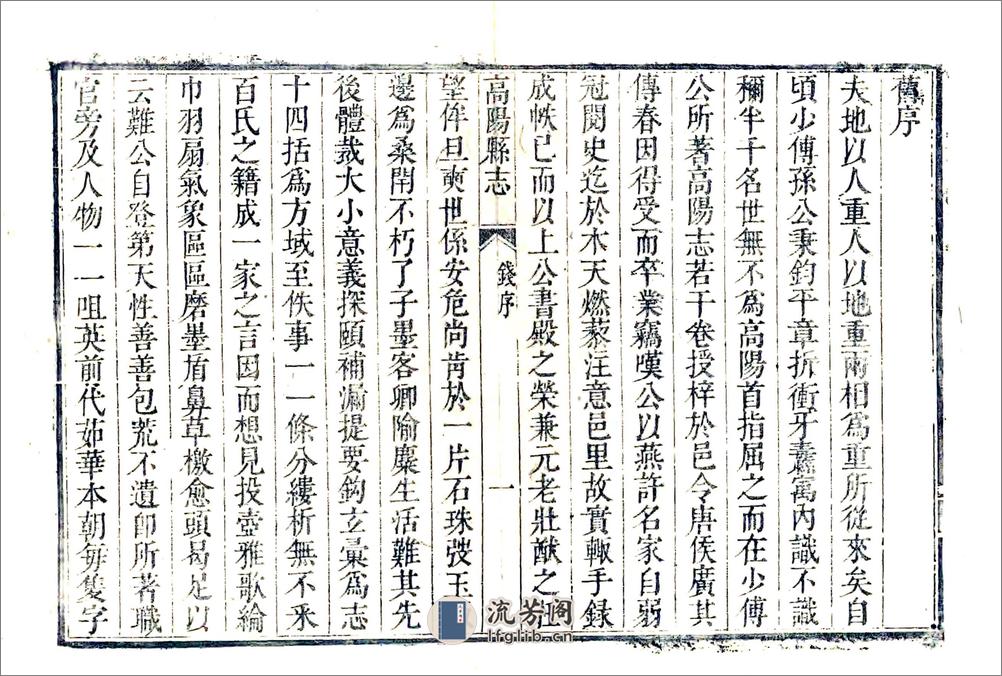 舊序
夫地以人重人以地重兩相爲重所從來矣自
頃少傅孫公秉鈞平章折衝牙纛寓內識不識
穪半千名世無不爲高陽首指屈之而在少傅
公所著高陽志若干卷授梓於邑令唐侯廣其
傳春因得受而卒業竊嘆公以燕許名家自弱
冠閱史迄於木天燃藜注意邑里故實輙手錄
成帙已而以上公書殿之榮兼元老壯猷之
高陽縣志
錢序
一
望侔旦奭世係安危尚肯於一片石珠弢玉
邊爲桑閈不朽了子墨客卿隃麋生活難其先
後體裁大小意義探賾補漏提要鈎玄彙爲志
十四括爲方域至佚事一一條分縷析無不釆
百氏之籍成一家之言因而想見投壺雅歌綸
巾羽扇氣象區區磨墨盾鼻草檄愈頭曷足以
云難公自登第天性善善包荒不遺卽所著職
官旁及人物一一咀英前代茹華本朝每隻字
流芳阁
lfglib.cn